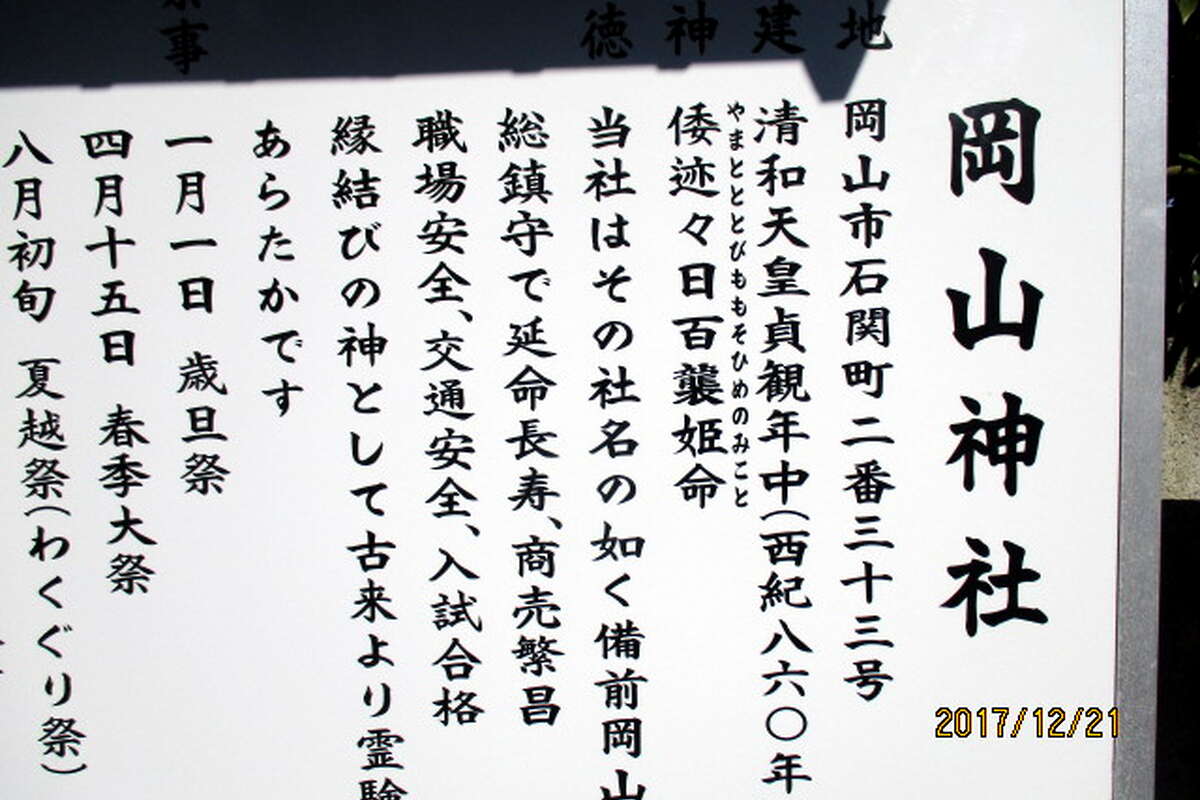 岡山神社
地 岡山市石関町二番三十三号
建 清和天皇貞観年中(西紀八六〇年
神 倭迹々日百襲姫命
やまとととびももそひめのみこと
徳 当社はその社名の如く備前岡山
総鎮守で延命長寿、商売繁昌
職場安全、交通安全、入試合格
縁結びの神として古来より霊験
あらたかです
事 一月一日 歳旦祭
四月十五日 春季大祭
八月初旬 夏越祭(わくぐり祭)
2017/12/21